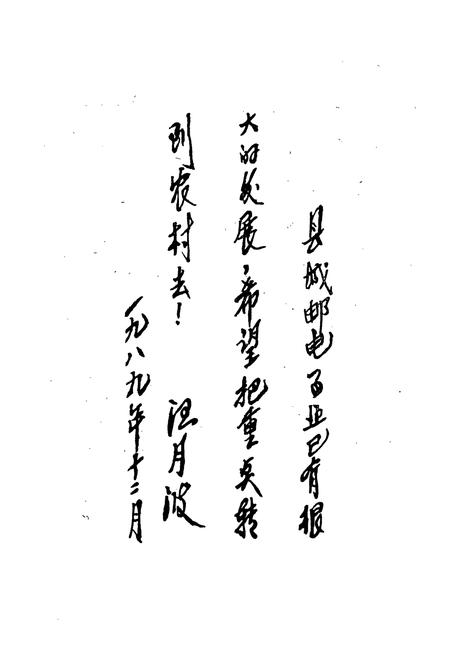 县城邮电事业已有很
大的发展,希望把重点转
到农村去!
月波
一九八九年十二月